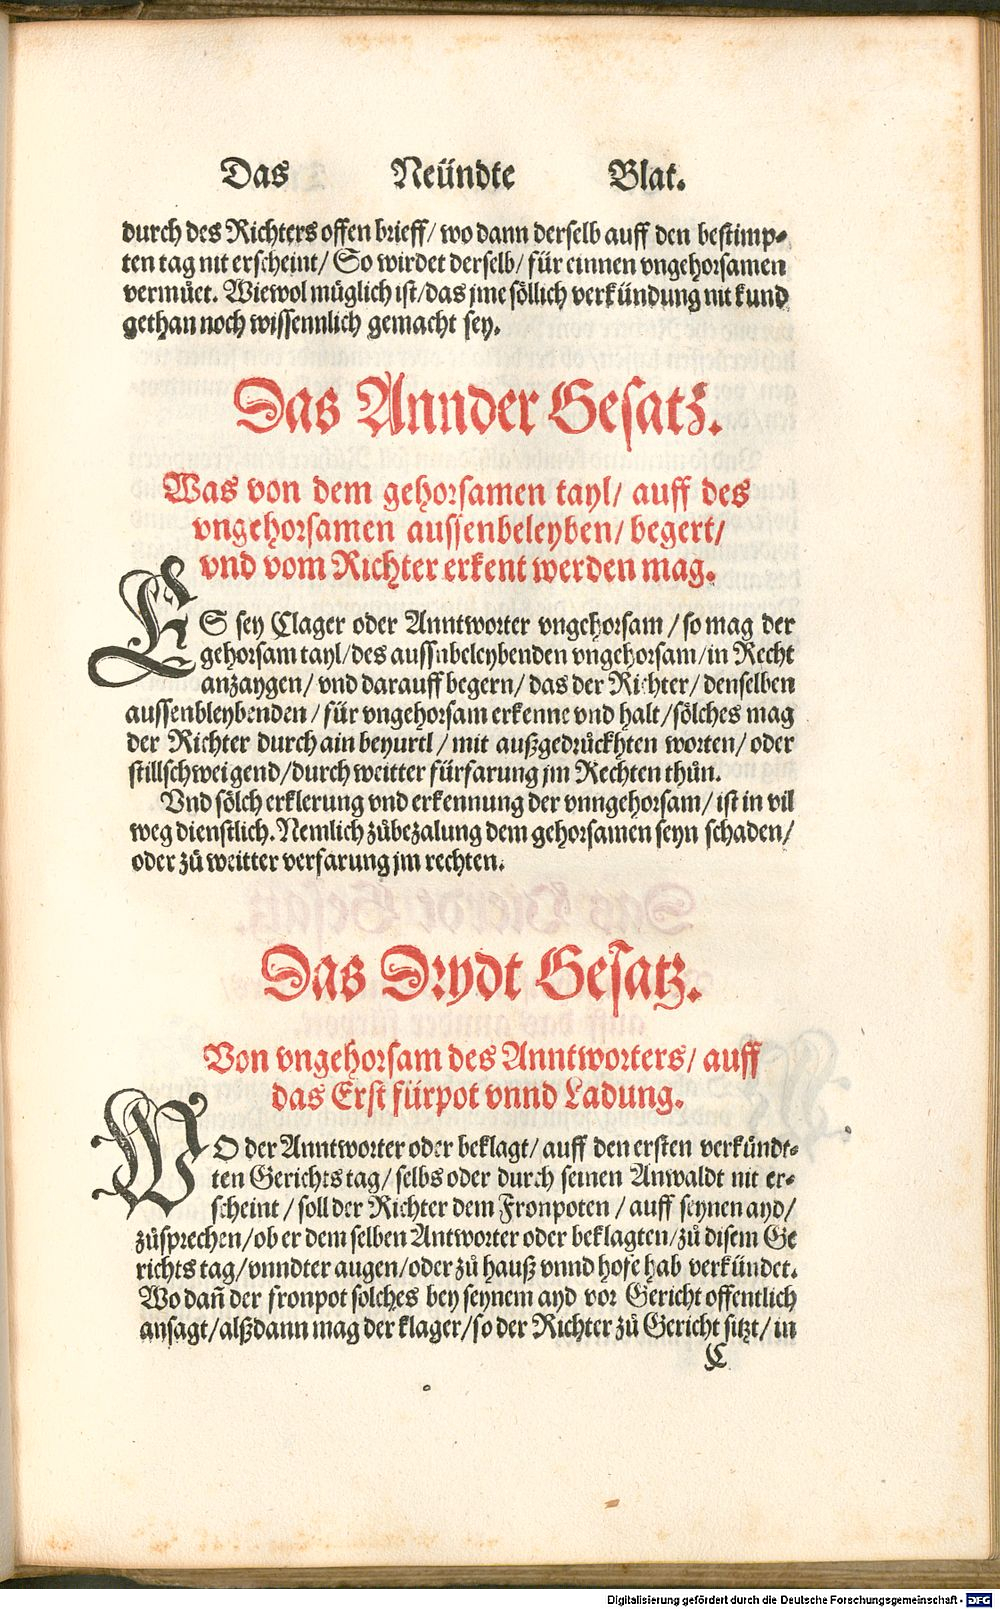 Das Neündte Blat.
durch des Richters offen brieff/ wo dann derselb auff den bestimp-
ten tag nit erscheint/ So wirdet derselb/ für einnen vngehorsamen
vermůet. Wiewol müglich ist/ das jme söllich verkündung nit kund
gethan noch wissennlich gemacht sey.
Das Annder Gesatz.
Was von dem gehorsamen tayl/ auff des
vngehorsamen aussenbeleyben/ begert/
vnd vom Richter erkent werden mag.
ES sey Clager oder Anntworter vngehorsam/ so mag der
gehorsam tayl/ des aussnbeleybenden vngehorsam/ in Recht
anzaygen/ vnd darauff begern/ das der Richter/ denselben
aussenbleybenden/ für vngehorsam erkenne vnd halt/ sölches mag
der Richter durch ain beyurtl/ mit außgedrückhten worten/ oder
stillschweigend/ durch weitter fürfarung jm Rechten thůn.
Vnd sölch erklerung vnd erkennung der vnngehorsam/ ist in vil
weg dienstlich. Nemlich zůbezalung dem gehorsamen seyn schaden/
oder zů weitter verfarung jm rechten.
Das Drydt Gesatz.
Von vngehorsam des Anntworters/ auff
das Erst fürpot vnnd Ladung.
WO der Anntworter oder beklagt/ auff den ersten verkündt-
ten Gerichts tag/ selbs oder durch seinen Anwaldt nit er-
scheint/ soll der Richter dem Fronpoten/ auff seynen ayd/
zůsprechen/ ob er dem selben Antworter oder beklagten/ zů disem Ge
richts tag/ vnndter augen/ oder zů hauß vnnd hofe hab verkündet.
Wo dañ der fronpot solches bey seynem ayd vor Gericht offentlich
ansagt/ alßdann mag der klager/ so der Richter zů Gericht sitzt/ in
C
Digitalisierung gefördert durch die Deutsche Forschungsgemeinschaft - DFG